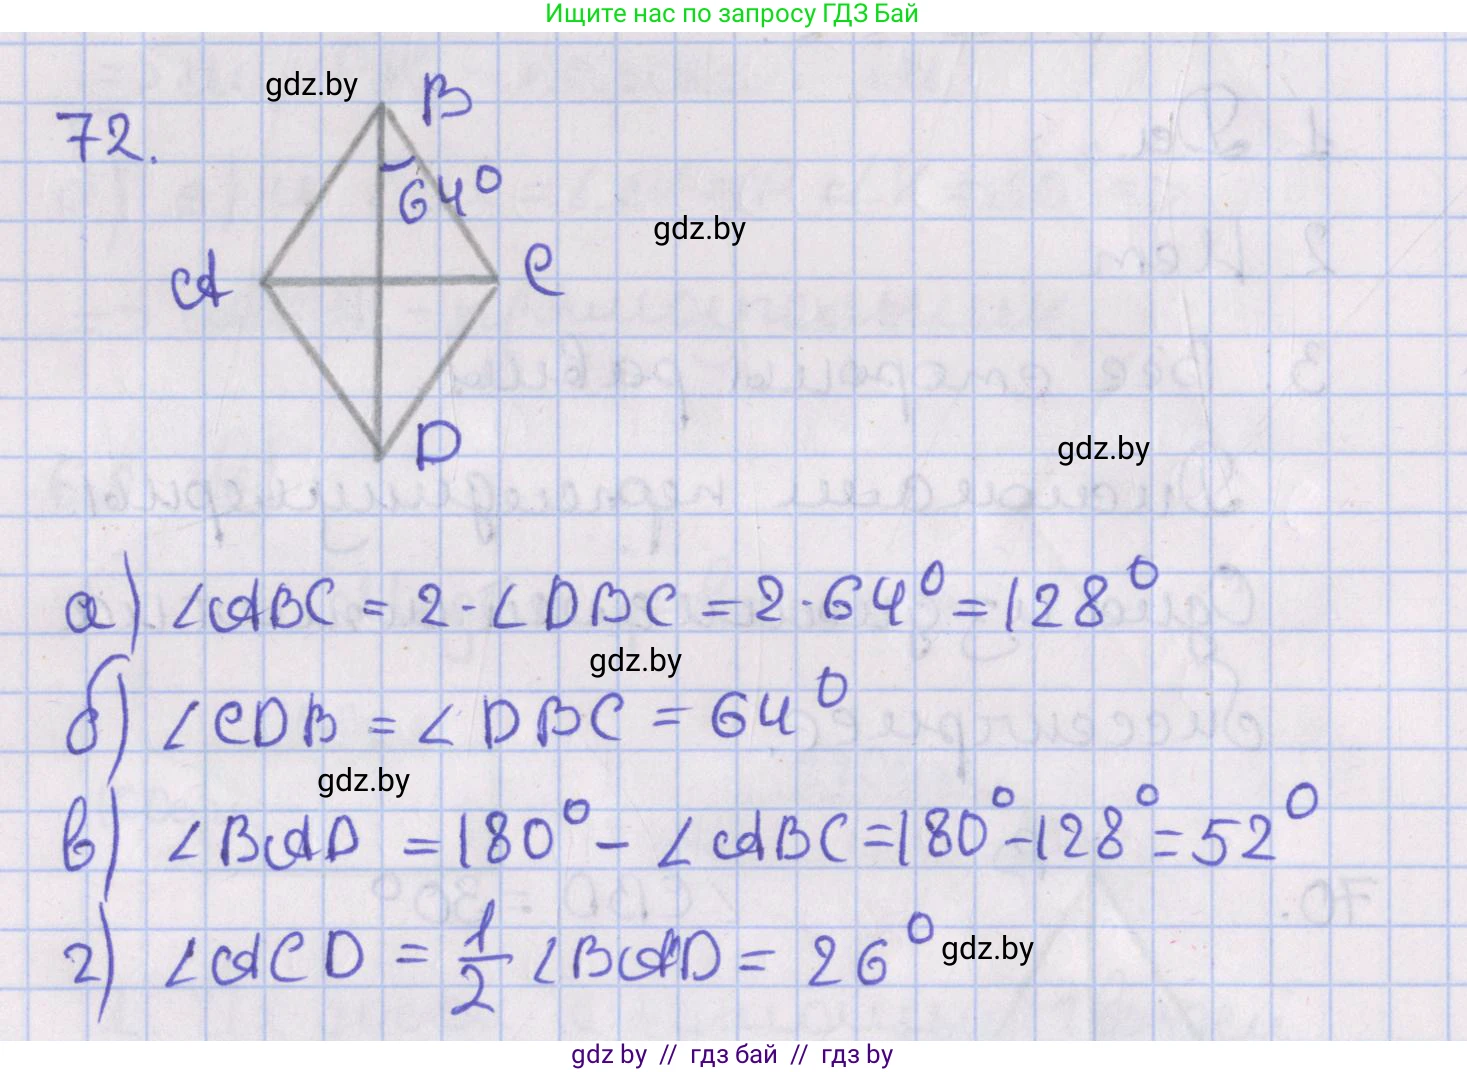 Ищите нас по запросу ГДЗ Бай
gdz.by
B
72.
64⁰
gdz.by
A
C
D
gdz.by
а) ∠ABC = 2·∠DBC = 2·64⁰ = 128⁰
gdz.by
б) ∠CDB = ∠DBC = 64⁰
gdz.by
в) ∠BAD = 180⁰ - ∠ABC = 180⁰ - 128⁰ = 52⁰
г) ∠ACD = 1/2 ∠BAD = 26⁰
gdz.by
gdz by // гдз бай // гдз by